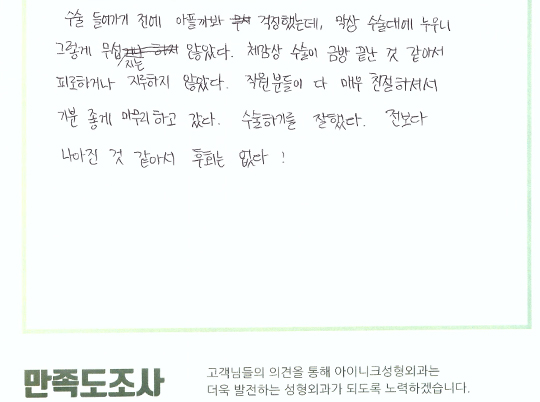 수술 들어가기 전에 아플까봐 걱정했는데, 막상 수술대에 누우니
그렇게 무섭지는 않았다. 체감상 수술이 금방 끝난 것 같아서
피로하거나 지루하지 않았다. 직원분들이 다 매우 친절하셔서
기분 좋게 마무리하고 갔다. 수술하기를 잘했다. 전보다
나아진 것 같아서 후회는 없다!
만족도조사
고객님들의 의견을 통해 아이니크성형외과는
더욱 발전하는 성형외과가 되도록 노력하겠습니다.